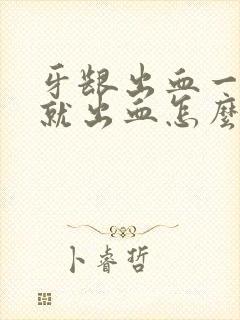 牙龈出血一
就出血怎麼
卜睿哲